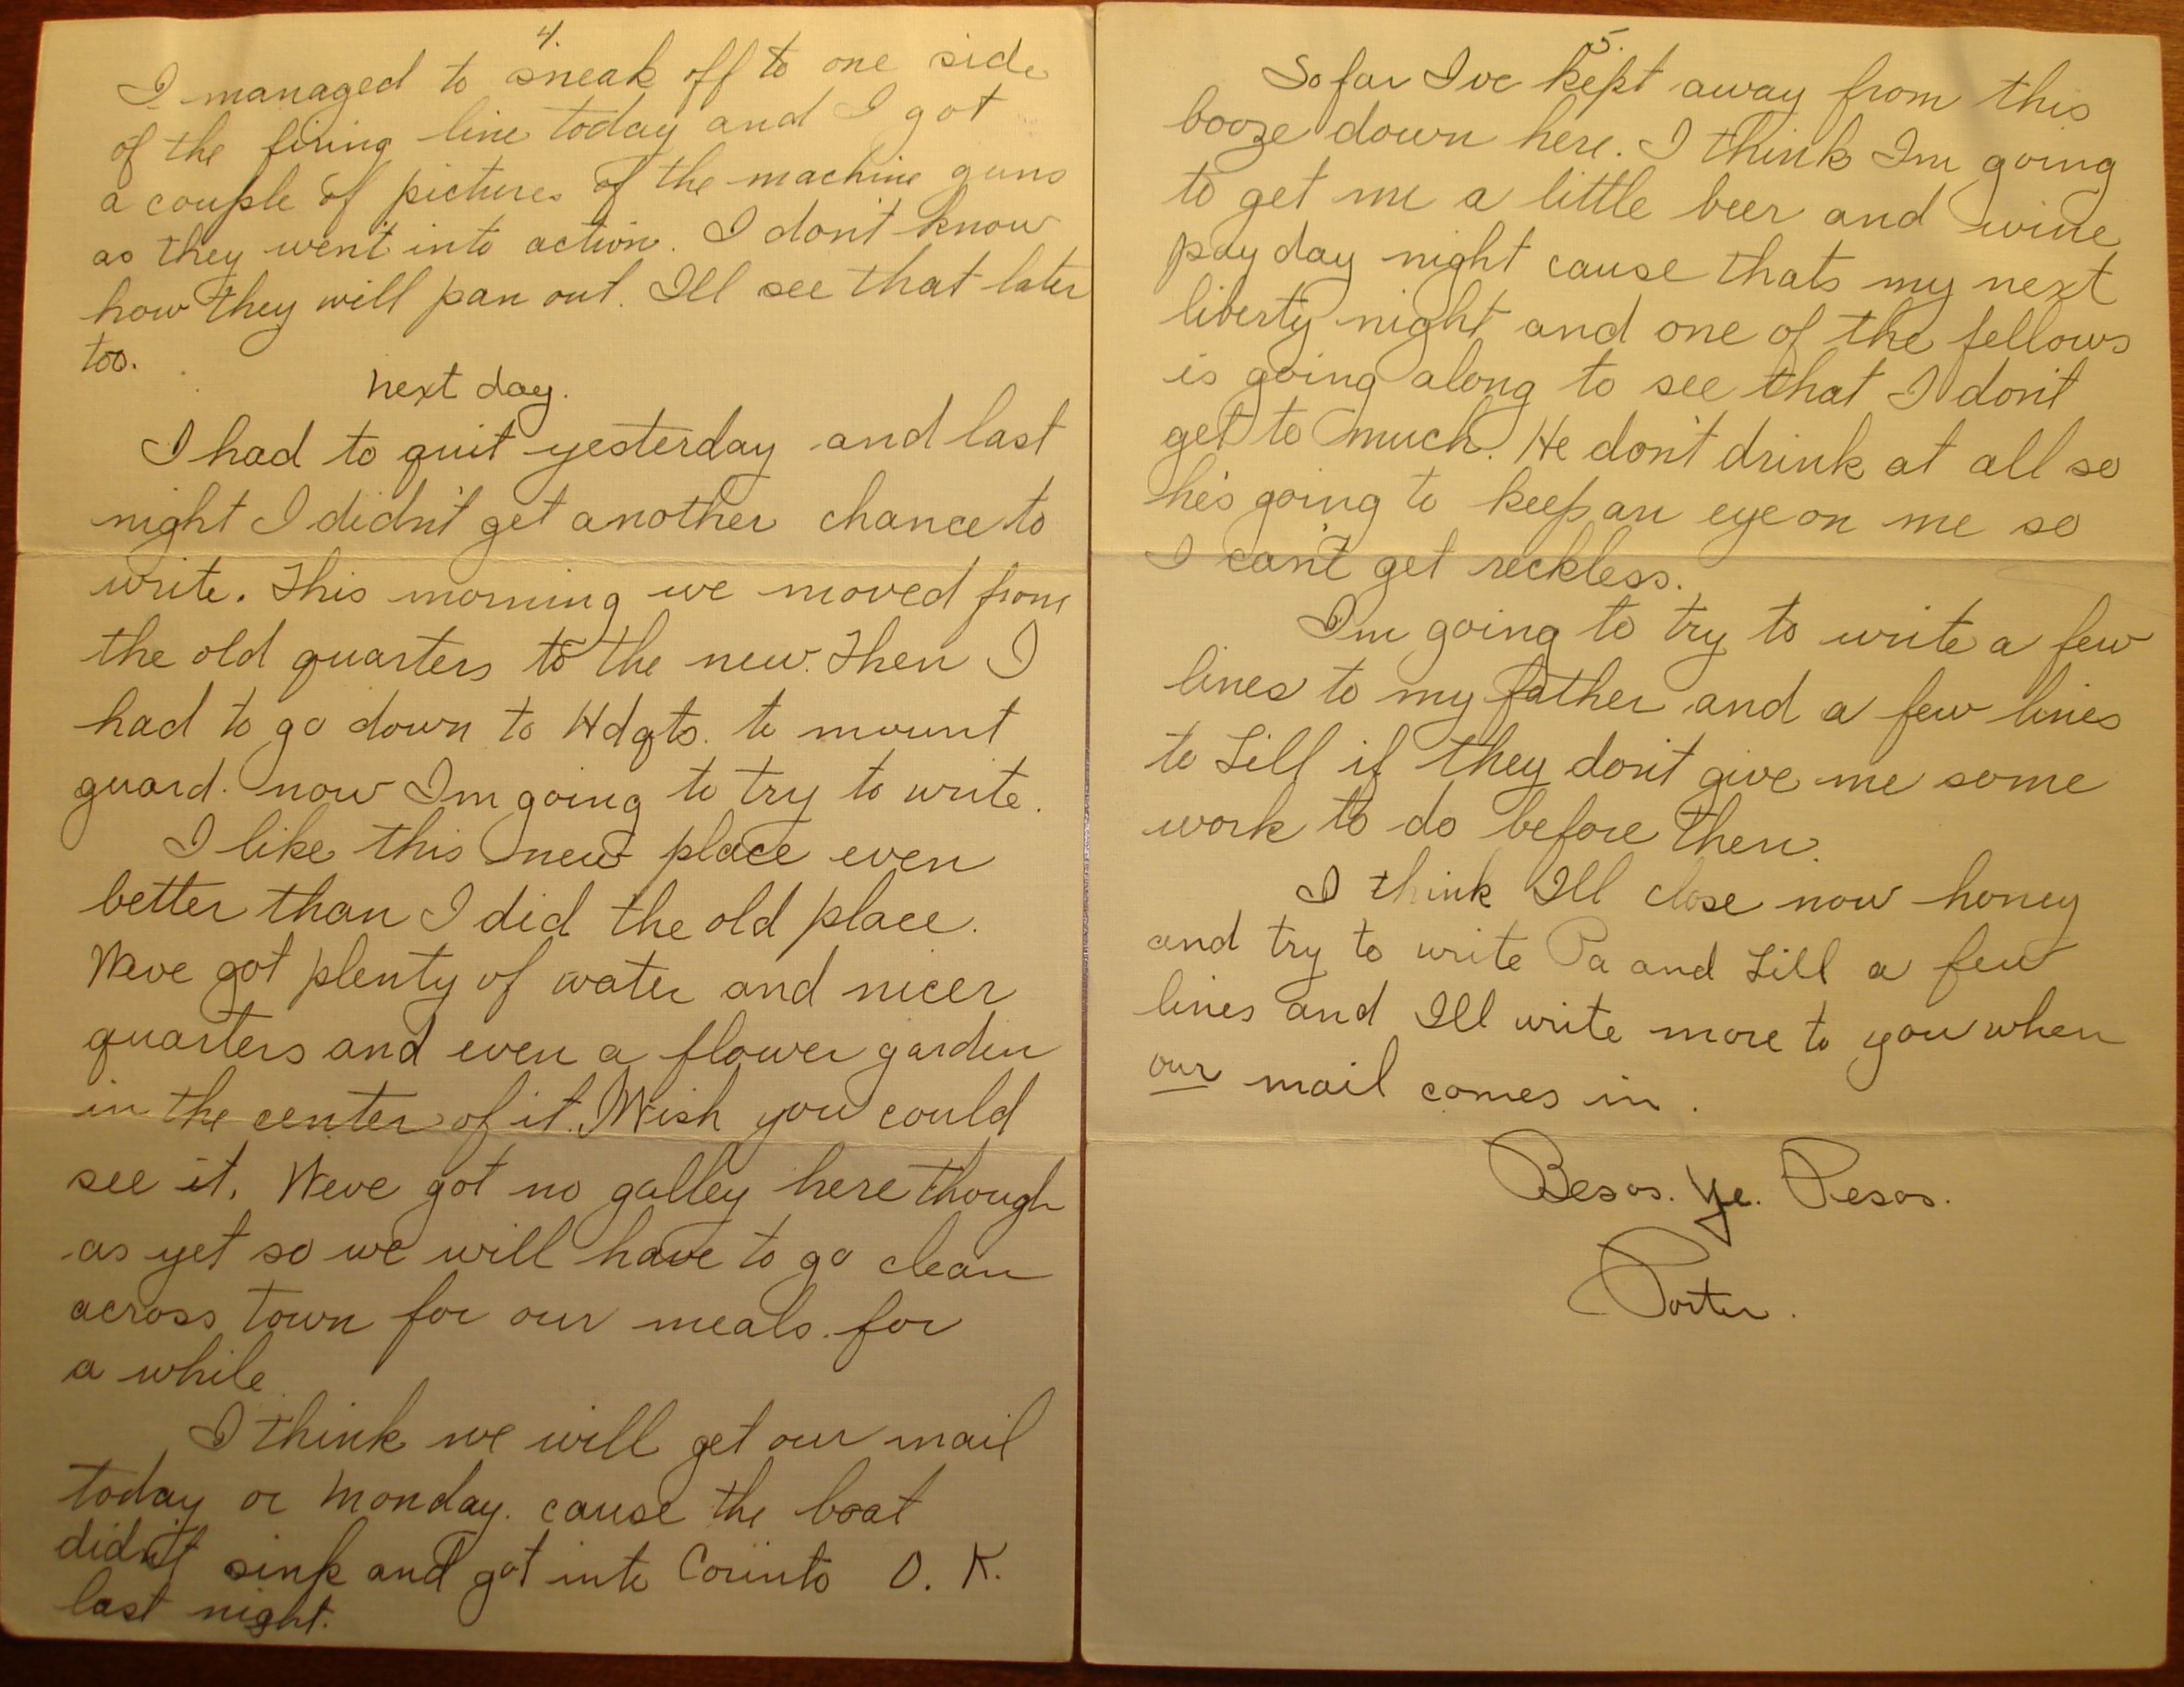 4.
I managed to sneak off to one side
of the firing line today and I got
a couple of pictures of the machine guns
as they went into action. I don't know
how they will pan out. Ill see that later
too.
next day.
I had to quit yesterday and last
night I didn't get another chance to
write. This morning we moved from
the old quarters to the new. Then I
had to go down to Hdqts. to mount
guard. now Im going to try to write.
I like this new place even
better than I did the old place.
Weve got plenty of water and nicer
quarters and even a flower garden
in the center of it. Wish you could
see it. Weve got no galley here though
as yet so we will have to go clean
across town for our meals. for
a while.
I think we will get our mail
today or monday. cause the boat
didn't sink and got into Corinto O. K.
last night.
5.
So far Ive kept away from this
booze down here. I think Im going
to get me a little beer and wine
pay day night cause thats my next
liberty night and one of the fellows
is going along to see that I don't
get to much. He don't drink at all so
he's going to keep an eye on me so
I can't get reckless.
Im going to try to write a few
lines to my father and a few lines
to Lill if they don't give me some
work to do before then.
I think Ill close now honey
and try to write Pa and Lill a few
lines and Ill write more to you when
our mail comes in.
Besos. Ye. Pesos.
Porter.